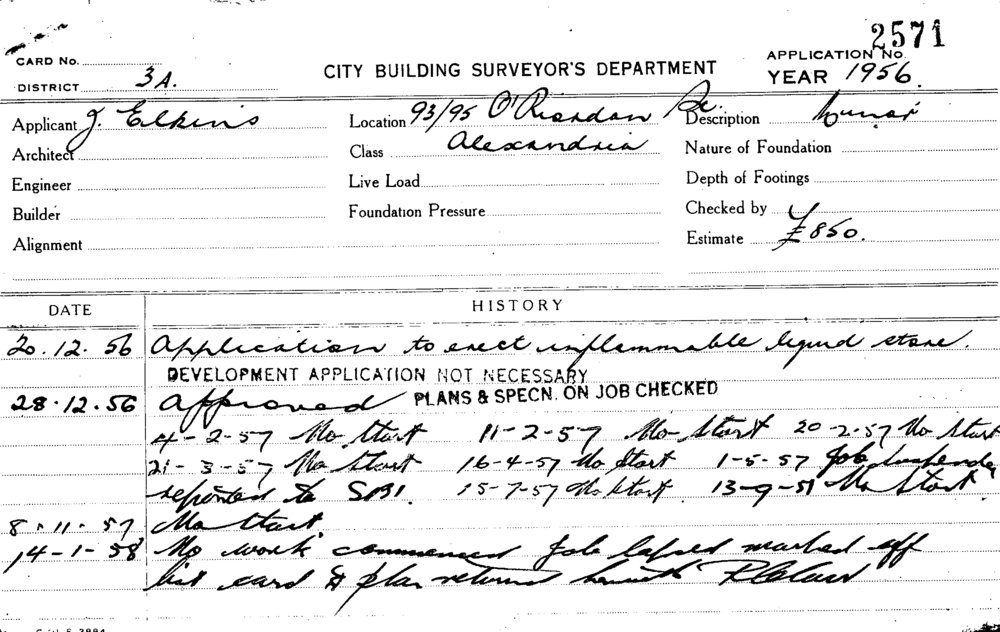 2571
CARD No.
APPLICATION No.
DISTRICT 3A.
CITY BUILDING SURVEYOR'S DEPARTMENT
YEAR 1956.
Applicant J. Elkins
Location 93/95 O'Riordan St.
Description
Architect
Class Alexandria
Nature of Foundation
Engineer
Live Load
Depth of Footings
Builder
Foundation Pressure
Checked by
Alignment
Estimate £850.
DATE
HISTORY
20.12.56 Application to erect inflammable liquid store.
DEVELOPMENT APPLICATION NOT NECESSARY
28.12.56 Approved PLANS & SPECN. ON JOB CHECKED
4-2-57 No Start 11-2-57 No Start 20-2-57 No Start
21-3-57 No Start 16-4-57 No Start 1-5-57 Job suspended
reported to SBI. 15-7-57 No Start 13-9-57 No Start
8.11.57 No Start
14-1-58 No work commenced Job lapsed marked off
list card & plan returned herewith